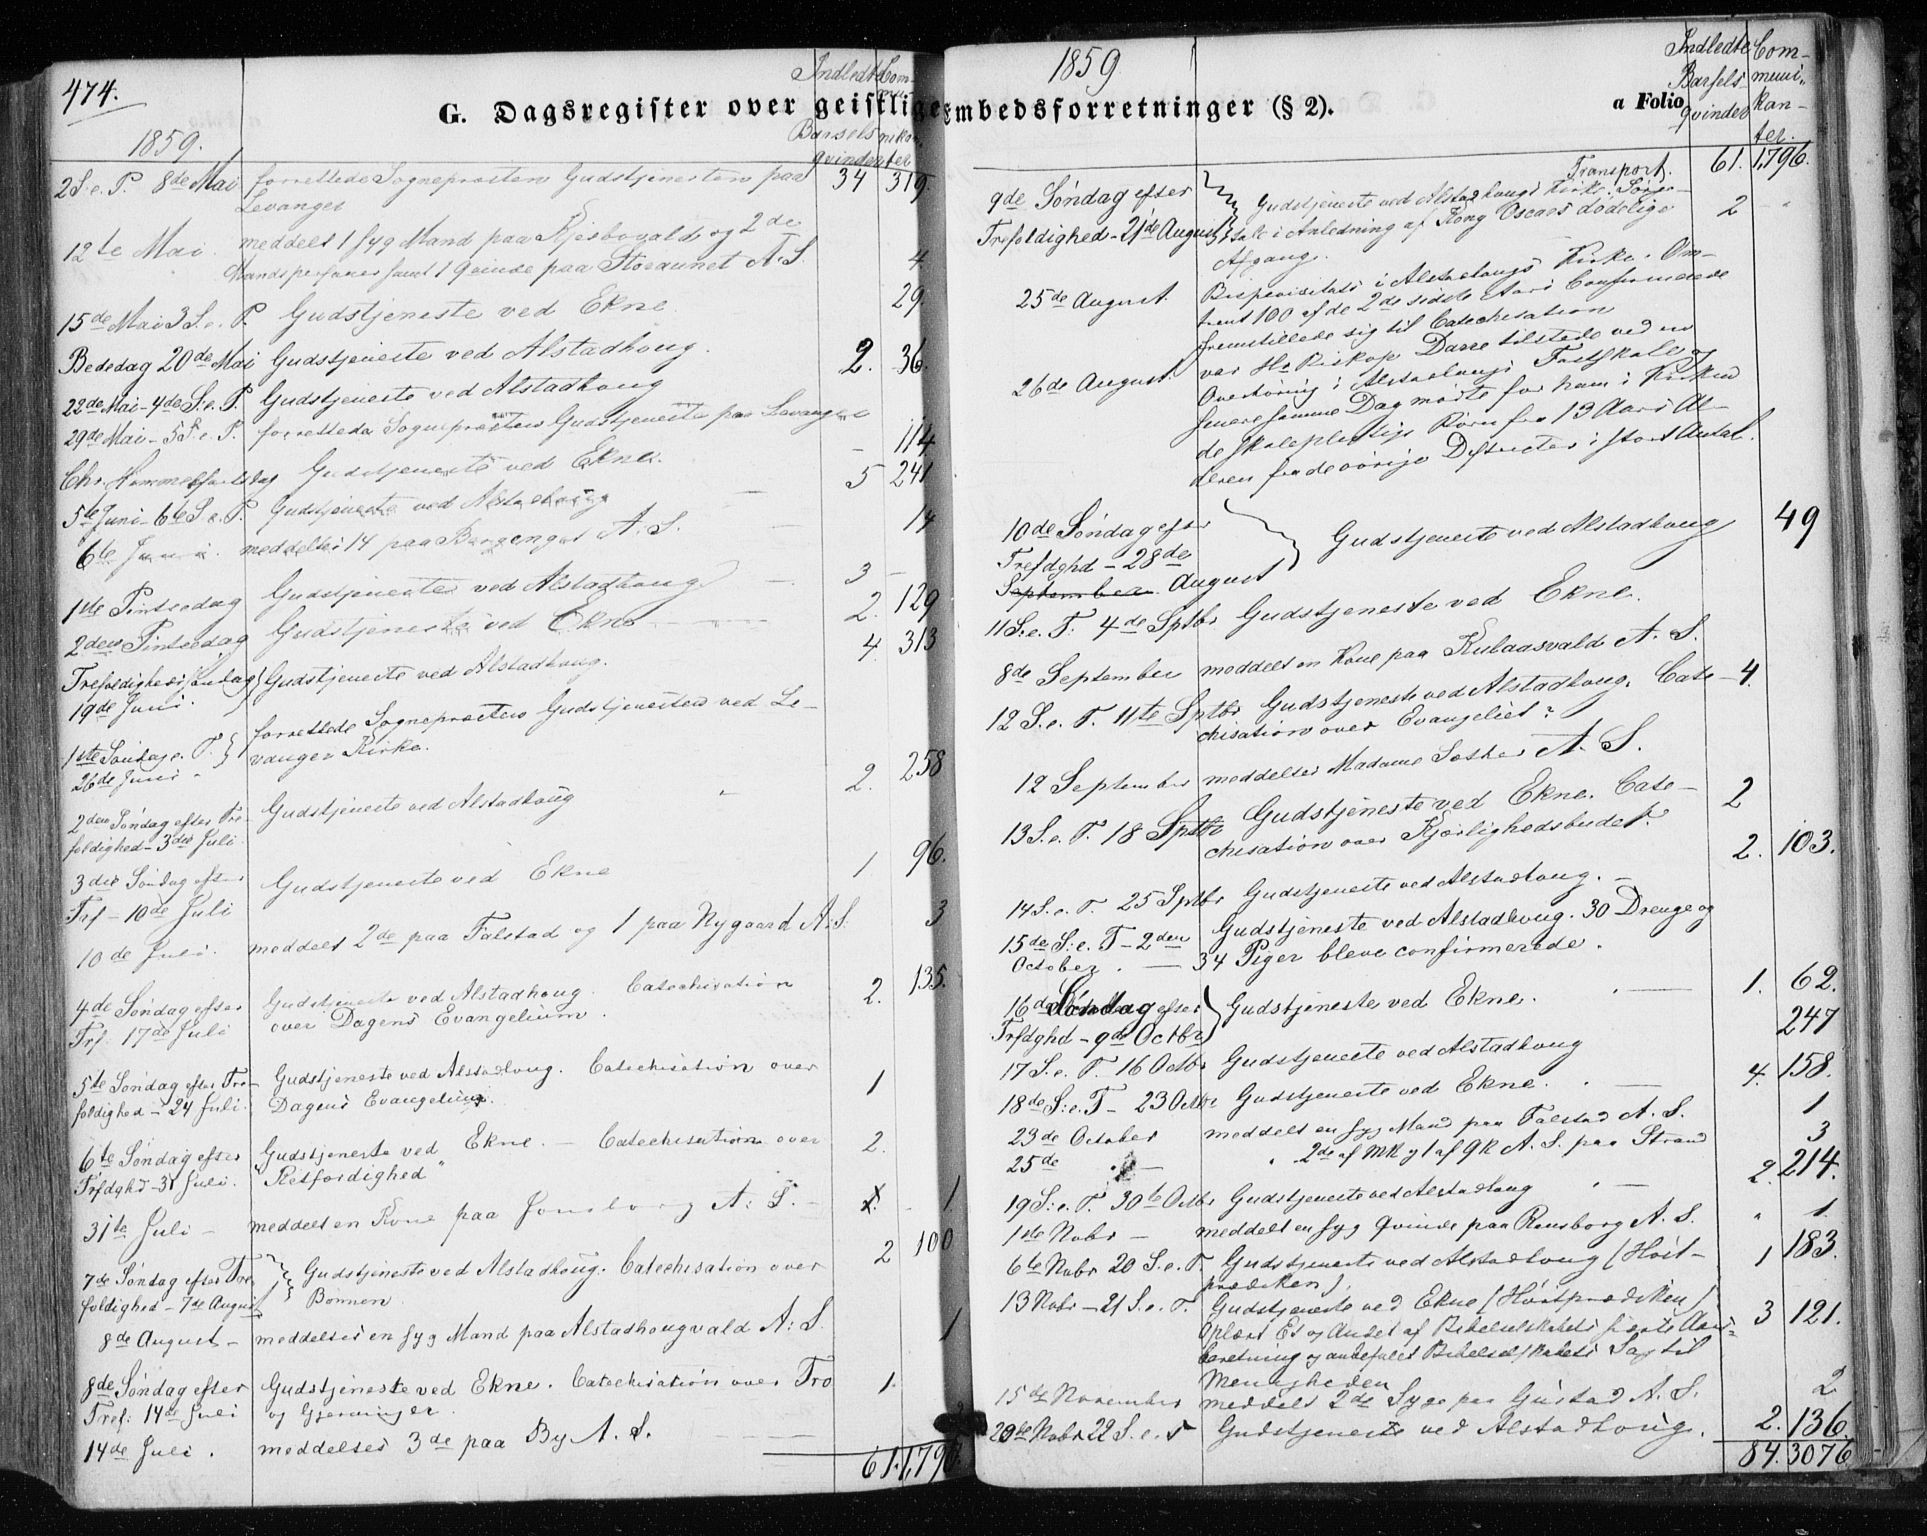 474.
G. Dagsregister over geistlige
1859.
Indledte Com-
mu-
Barsels nikan-
qvinder ter
2 S. e. P. 8de Mai forrettede Sognepræsten Gudstjenesten paa 34 319.
Levanger
12te Mai meddelt 1 syg Mand paa og 2de
Mandspersoner samt 1 Qvinde paa Stoeaunet A. S. 4.
15de Mai 3 S. e. P. Gudstjeneste ved Ekne 29.
Bededag 20de Mai Gudstjeneste ved Alstadhoug. 2. 36.
22de Mai - 4de S. e. P. Gudstjeneste ved Alstadhoug
29de Mai - 5 S. e. P. forrettede Sognepræsten Gudstjeneste paa Levanger 114
Chr. Himmelfartsdag Gudstjeneste ved Ekne. 5 241
5te Juni - 6te S. e. P. Gudstjeneste ved Alstadhoug
6te Juni. meddeltes 14 paa A. S. 14
1ste Pintsedag Gudstjeneste ved Alstadhoug 3 -
2den Pintsedag Gudstjeneste ved Ekne 2. 129
Trefoldighedssøndag Gudstjeneste ved Alstadhoug. 4. 313
19de Juni.
1ste Søndag e. T. forrettede Sognepræsten Gudstjenesten ved Le-
26de Juni vanger Kirke.
2den Søndag efter Tre- Gudstjeneste ved Alstadhoug 2. 258
foldighed - 3die Juli
3die Søndag efter Gudstjeneste ved Ekne 1 96.
Trf - 10de Juli
10de Juli. meddelt 2de paa Falstad og 1 paa Nygaard A. S. 3
4de Søndag efter Gudstjeneste ved Alstadhoug. Catechisation 2. 135.
Trf. 17de Juli over Dagens Evangelium.
5te Søndag efter Tre- Gudstjeneste ved Alstadhoug. Catechisation over 1
foldighed - 24 Juli. Dagens Evangelium.
6te Søndag efter Gudstjeneste ved Ekne. - Catechisation over 2.
Trfdghd - 31 Juli. "Retfærdighed"
31te Juli - meddelt en Kone paa Jonsborg A. S. - 1
7de Søndag efter Tre- Gudstjeneste ved Alstadhoug. Catechisation over 2 100
foldighed - 7de August Bønnen.
8de August - meddeltes en syg Mand paa Alstadhougvald A. S. 1
8de Søndag efter Gudstjeneste ved Ekne. Catechisation over Tro 1.
Tref: 14de Juli og Gjerninger.
14de Juli. meddeltes 3de paa By A. S.
61. 1,796
1859
Embedsforretninger (§ 2).
a Folio
Indledte Com-
Barsels- muni-
qvinder kan-
ter.
Transport. 61. 1,796.
9de Søndag efter Gudstjeneste ved Alstadhougs Kirke. Sørge-
Trefoldighed - 21de August tale i Anledning af Kong Oscars dødelige 2 "
Afgang.
25de August. Bispevisitats i Alstadhougs Kirke. Om-
trent 100 af de 2de sidste Aars Confirmerede
fremstillede sig til Catechisation
26de August. var Hr Biskop Darre tilstede ved en
Overhøring i Alstadhougs Fastskole og
senere samme Dag mødte for ham i Kirken
de skolepligtige Børn fra 13 Aars Al-
deren fra de øvrige Districter i stort Antal.
10de Søndag efter Gudstjeneste ved Alstadhoug 49
Trefdghd - 28de
September August
11 S. e. T. 4de Sptbr Gudstjeneste ved Ekne.
8de September meddelt en Kone paa Kubaasvald A. S.
12 S. e. T. 11te Sptbr Gudstjeneste ved Alstadhoug. Cate- 4.
chisation over Evangeliet.
12 September meddeltes Madame A. S.
13 S. e. T. 18 Sptbr Gudstjeneste ved Ekne. Cate- 2
chisation over Kjærlighedsbudet.
14 S. e. T. 25 Sptbr Gudstjeneste ved Alstadhoug. - 2. 103.
15de S. e. T - 2den Gudstjeneste ved Alstadhoug. 30 Drenge og
October. - 34 Piger bleve confirmerede.
16de Søndag efter Gudstjeneste ved Ekne. 1. 62.
Trfdghd - 9de Octbr 247
17 S. e. T. 16 Octbr Gudstjeneste ved Alstadhoug
18de S. e. T - 23 Octbr Gudstjeneste ved Ekne. 4. 158.
23de October meddelt en syg Mand paa Falstad A. S. 1
25de " - " 2de af MK og 1 af QK A. S. paa Strand 3
19 S. e. T. 30te Octbr Gudstjeneste ved Alstadhoug 2. 214.
1ste Novbr - meddelt en syg Qvinde paa Rensborg A. S. " 1.
6te Novbr 20 S. e. T Gudstjeneste ved Alstadhoug (Høst- 1 183.
prædiken).
13 Novbr - 21 S. e. T. Gudstjeneste ved Ekne (Høstprædiken) 3 121.
Oplæst Et og Andet af Bibelselskabets Aars-
beretning og anbefalet Bibelselskabets Sag til
Menigheden
15de November meddelt 2de Syge paa Gustad A. S. 2
20de Novbr 22 S. e. T Gudstjeneste ved Alstadhoug. 2. 136.
84. 3076